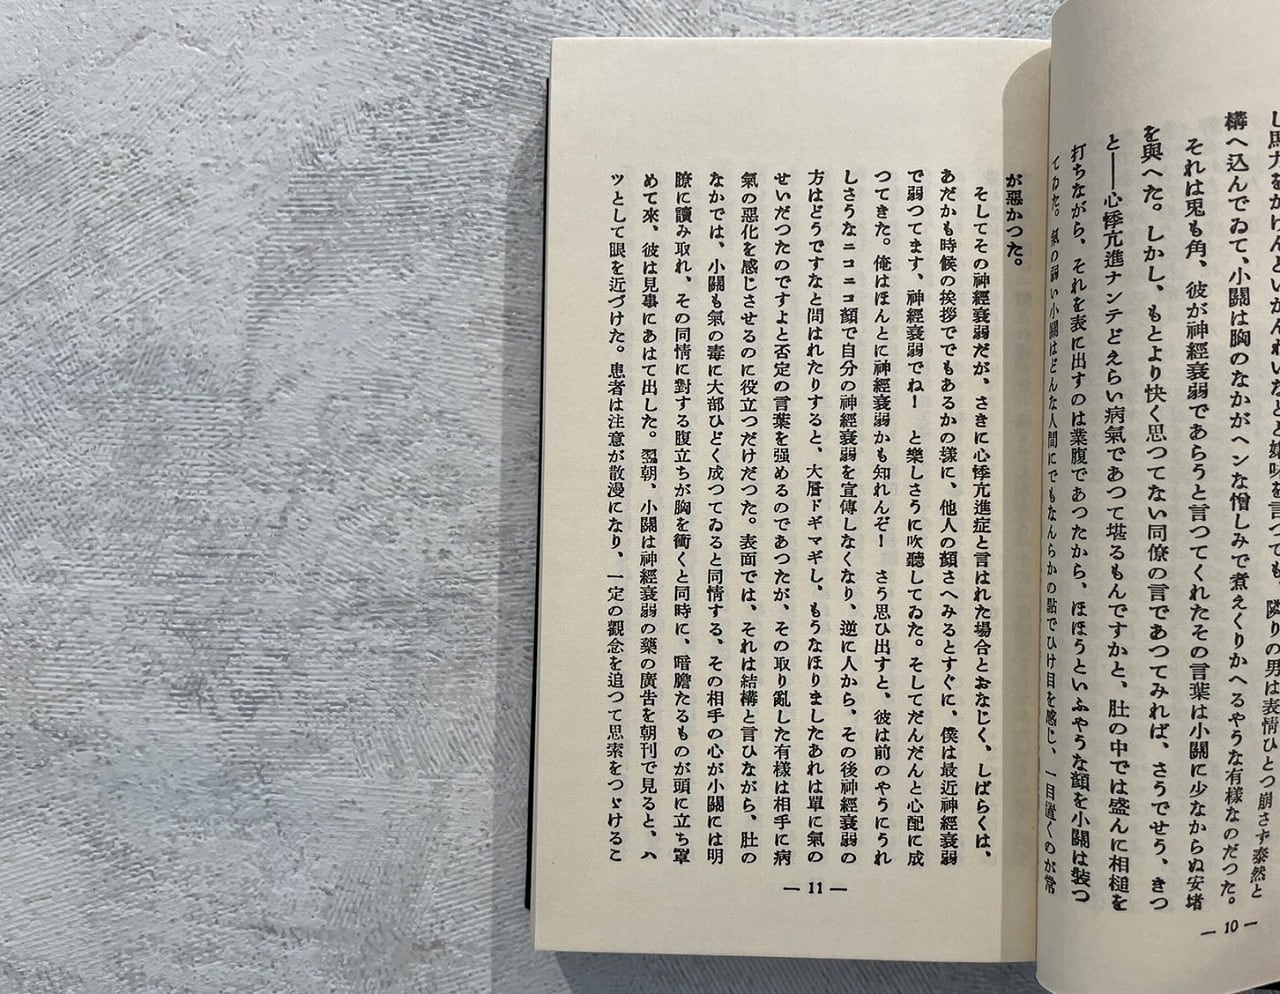 し馬力をかけんといかんれいなどと嫌味を言つても、隣りの男は表情ひとつ崩さず泰然と
構へ込んでゐて、小關は胸のなかがヘンな憎しみで煮えくりかへるやうな有樣なのだつた。
それは兎も角、彼が神經衰弱であらうと言つてくれたその言葉は小關に少なからぬ安堵
を與へた。しかし、もとより快く思つてない同僚の言であつてみれば、さうでせう、きつ
と――心悸亢進ナンテどえらい病氣であつて堪るもんですかと、肚の中では盛んに相槌を
打ちながら、それを表に出すのは業腹であつたから、ほほうといふやうな顏を小關は裝つ
てゐた。氣の弱い小關はどんな人間にでもなんらかの點でひけ目を感じ、一目置くのが常
― 10 ―
が惡かつた。
そしてその神經衰弱だが、さきに心悸亢進症と言はれた場合とおなじく、しばらくは、
あだかも時候の挨拶ででもあるかの樣に、他人の顏さへみるとすぐに、僕は最近神經衰弱
で弱つてます、神經衰弱でね！　と樂しさうに吹聽してゐた。そしてだんだんと心配に成
つてきた。俺はほんとに神經衰弱かも知れんぞ！　さう思ひ出すと、彼は前のやうにうれ
しさうなニコニコ顏で自分の神經衰弱を宣傳しなくなり、逆に人から、その後神經衰弱の
方はどうですなと問はれたりすると、大層ドギマギし、もうなほりましたあれは單に氣の
せいだつたのですよと否定の言葉を强めるのであつたが、その取り亂した有樣は相手に病
氣の惡化を感じさせるのに役立つだけだつた。表面では、それは結構と言ひながら、肚の
なかでは、小關も氣の毒に大部ひどく成つてゐると同情する、その相手の心が小關には明
瞭に讀み取れ、その同情に對する腹立ちが胸を衝くと同時に、暗膽たるものが頭に立ち罩
めて來、彼は見事にあはて出した。翌朝、小關は神經衰弱の藥の廣告を朝刊で見ると、ハ
ツとして眼を近づけた。患者は注意が散漫になり、一定の觀念を追つて思索をつゞけるこ
― 11 ―